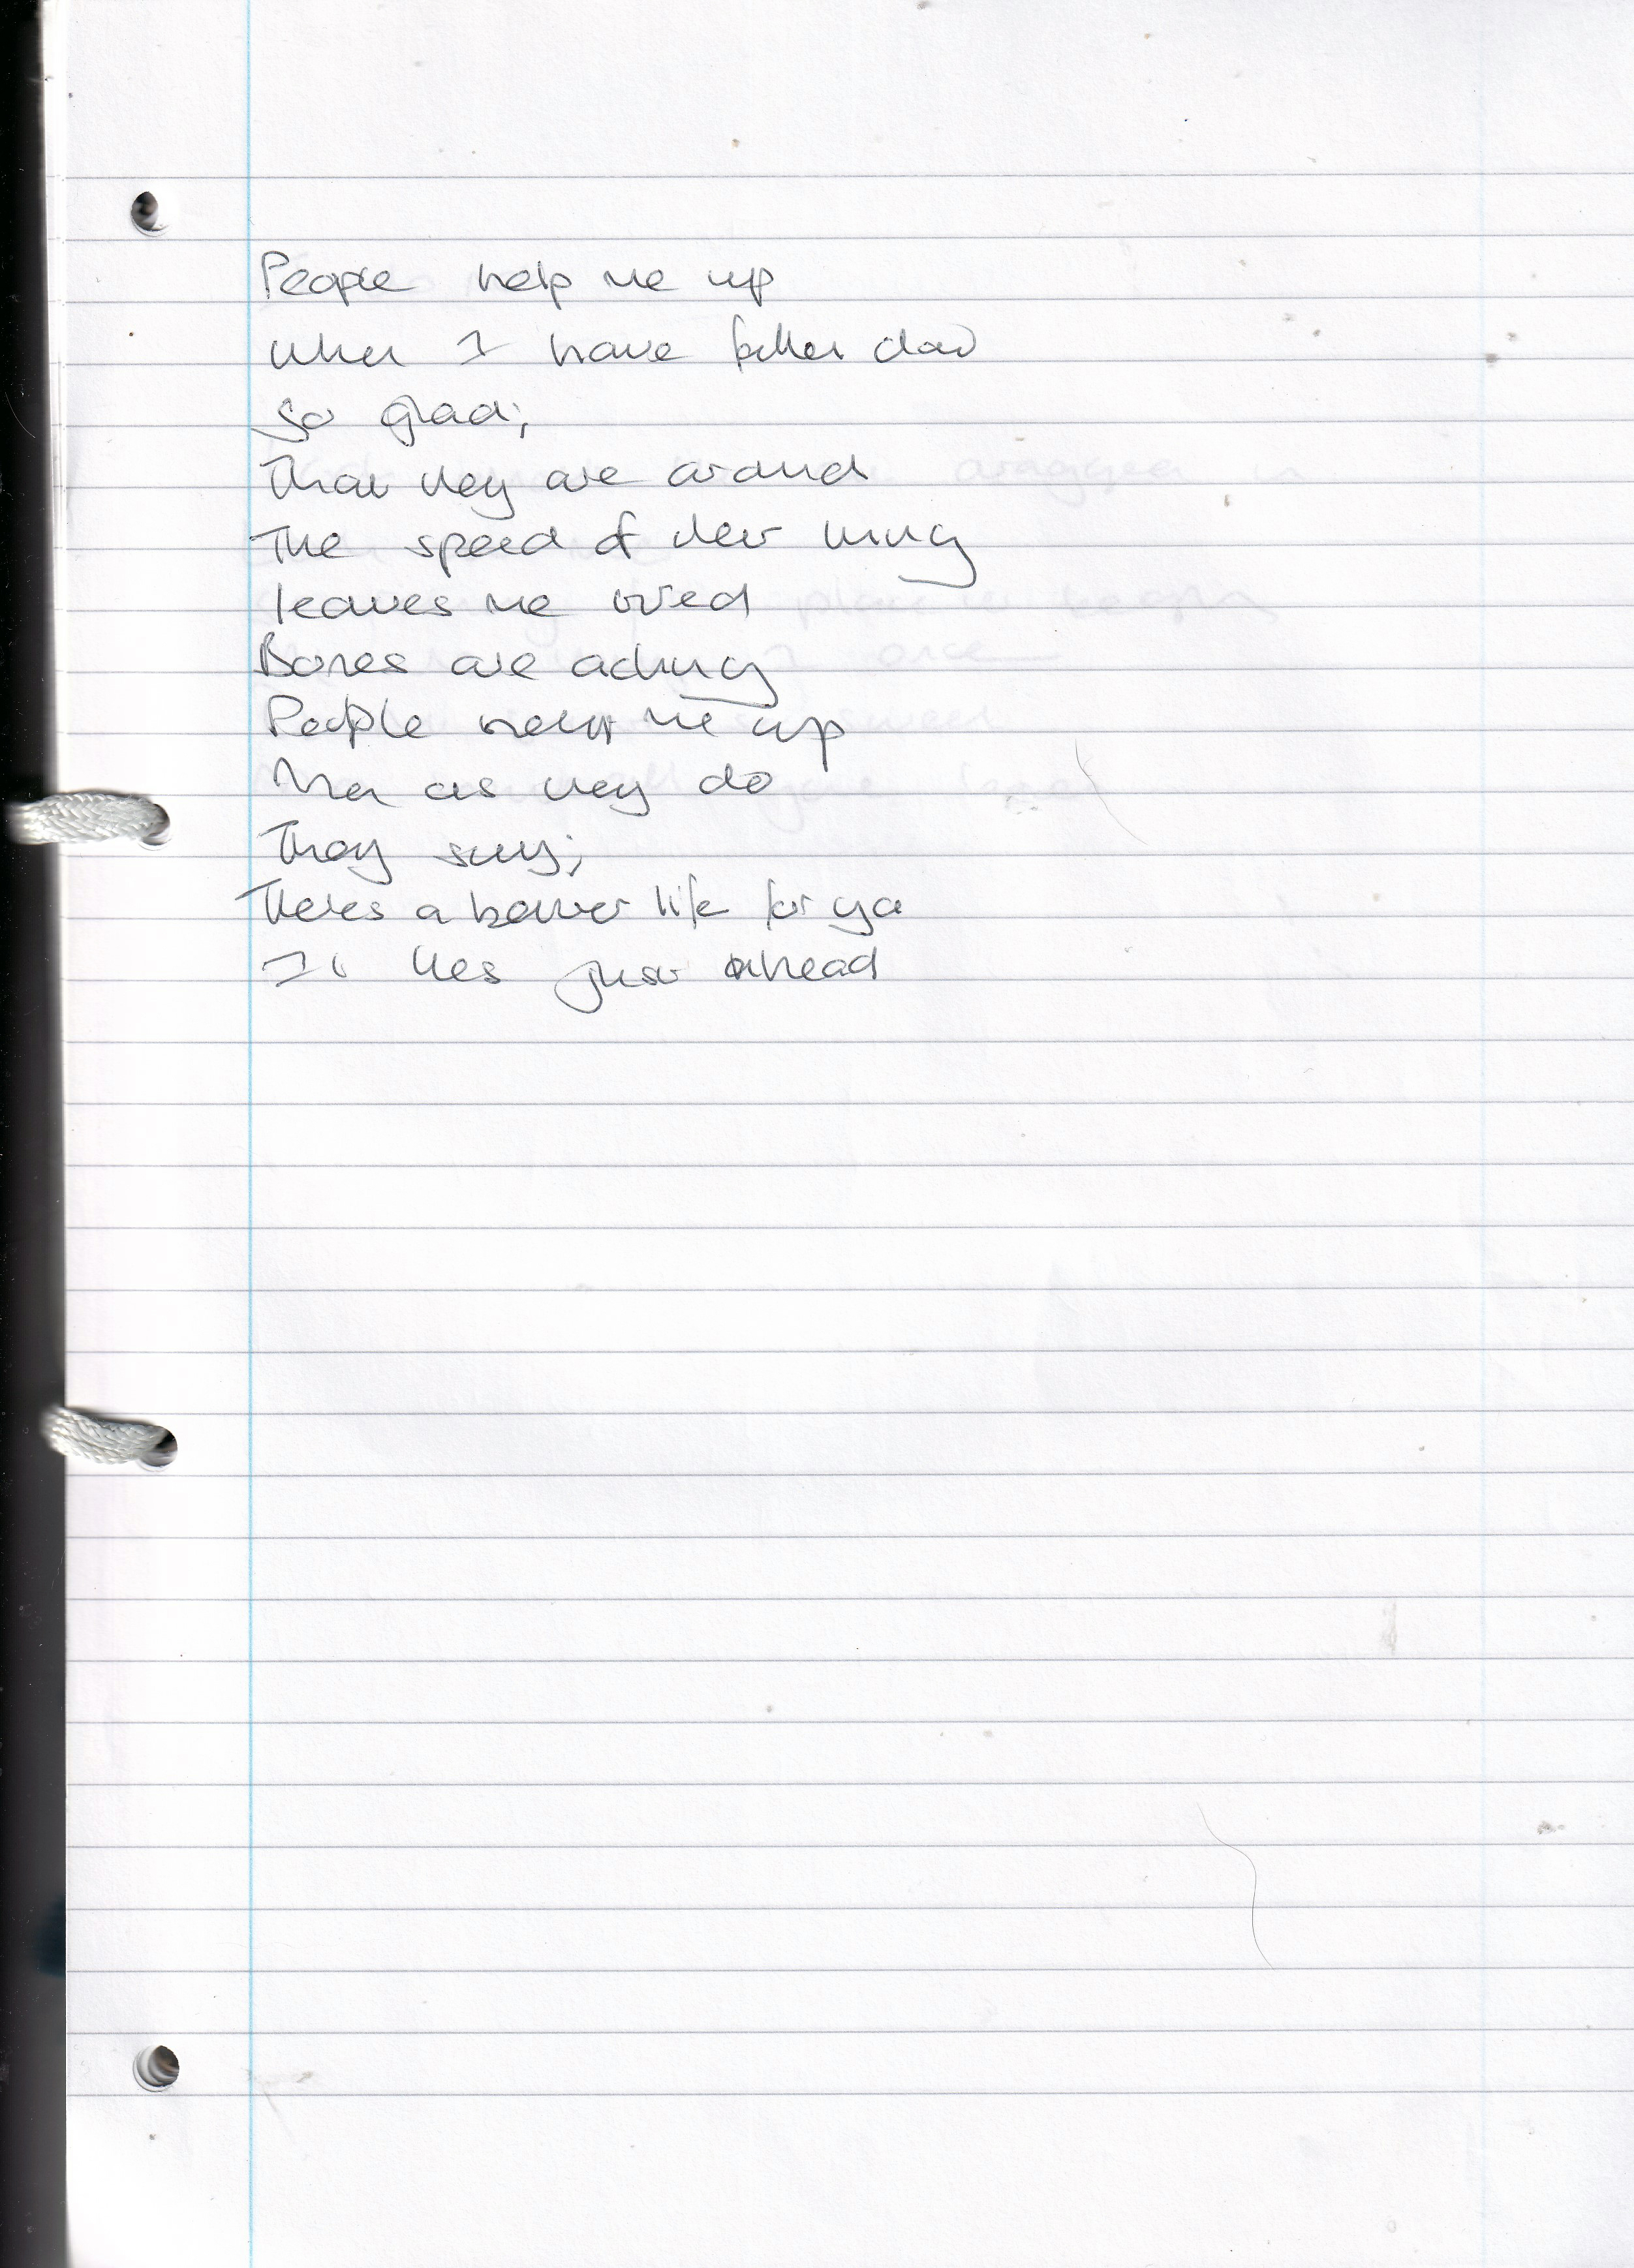 People help me up
When I have fallen down
So glad;
That they are around
The speed of their
leaves me tired
Bones are aching
People me up
as they do
They say;
Theres a better life for ya
It lies just ahead